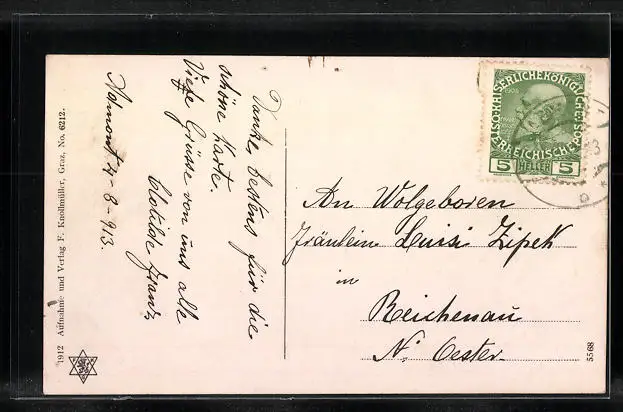 Danke, bestens für die
schöne Karte.
Viele Grüsse von uns alle
Clotilde Franz
Admont 4-8-913.
1912 Aufnahme und Verlag F. Knollmüller, Graz, No. 6212.
KAISERLICHE KÖNIGLICHE ÖSTERREICHISCHE
5 HELLER 5
An Wolgeboren
Fräulein Luisi Zipek
in
Reichenau
N. Oester.
5568